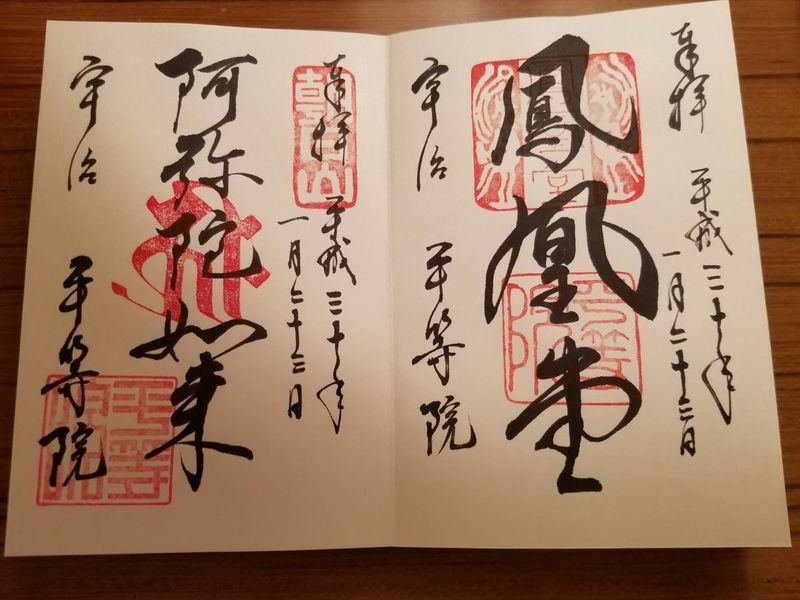 奉拝 平成三十年
一月二十三日
鳳凰堂
宇治 平等院
朝日山
奉拝 平成三十年
一月二十三日
阿弥陀如来
宇治 平等院
平等院印